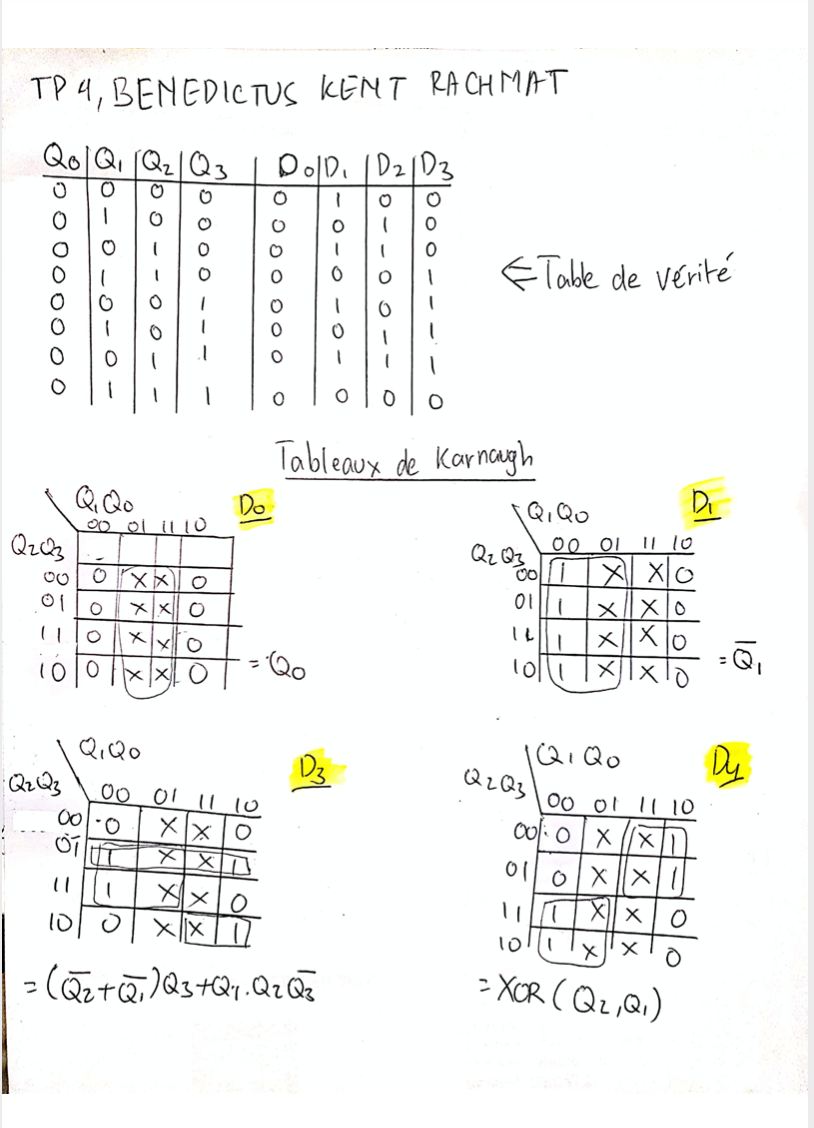 TP 4, BENEDICTUS KENT RACHMAT
Q0 Q1 Q2 Q3 D0 D1 D2 D3
0 0 0 0 0 1 0 0
0 1 0 0 0 0 1 0
0 0 1 0 0 1 1 0
0 1 1 0 0 0 0 1
0 0 0 1 0 1 0 1
0 1 0 1 0 0 1 1
0 0 1 1 0 1 1 1
0 1 1 1 0 0 0 0
⇐ Table de vérité
Tableaux de Karnaugh
D0
Q1Q0
00 01 11 10
Q2Q3
00 0 X X 0
01 0 X X 0
11 0 X X 0
10 0 X X 0
= Q0
D1
Q1Q0
Q2Q3
00 01 11 10
00 1 X X 0
01 1 X X 0
11 1 X X 0
10 1 X X 0
= Q̅1
D3
Q1Q0
Q2Q3
00 01 11 10
00 0 X X 0
01 1 X X 1
11 1 X X 0
10 0 X X 1
= (Q̅2+Q̅1)Q3+Q1.Q2Q̅3
D4
Q1Q0
Q2Q3
00 01 11 10
00 0 X X 1
01 0 X X 1
11 1 X X 0
10 1 X X 0
= XOR(Q2,Q1)